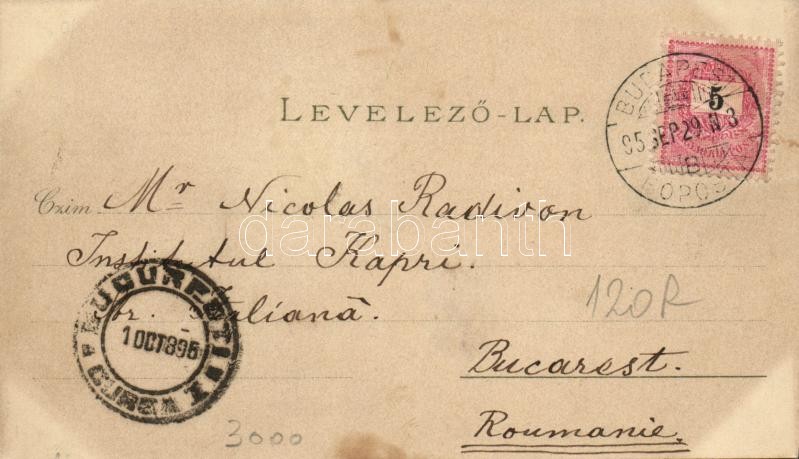 LEVELEZŐ-LAP.
BUDAPEST
5
95 SEP 29 N 3
FŐPOSTA
Czim Mr Nicolas Radivon
darabanth
Institutul Kapri.
Str. Italiană.
120R
BUCURESTI
1 OCT 895
CURSA
Bucarest.
Roumanie.
3000